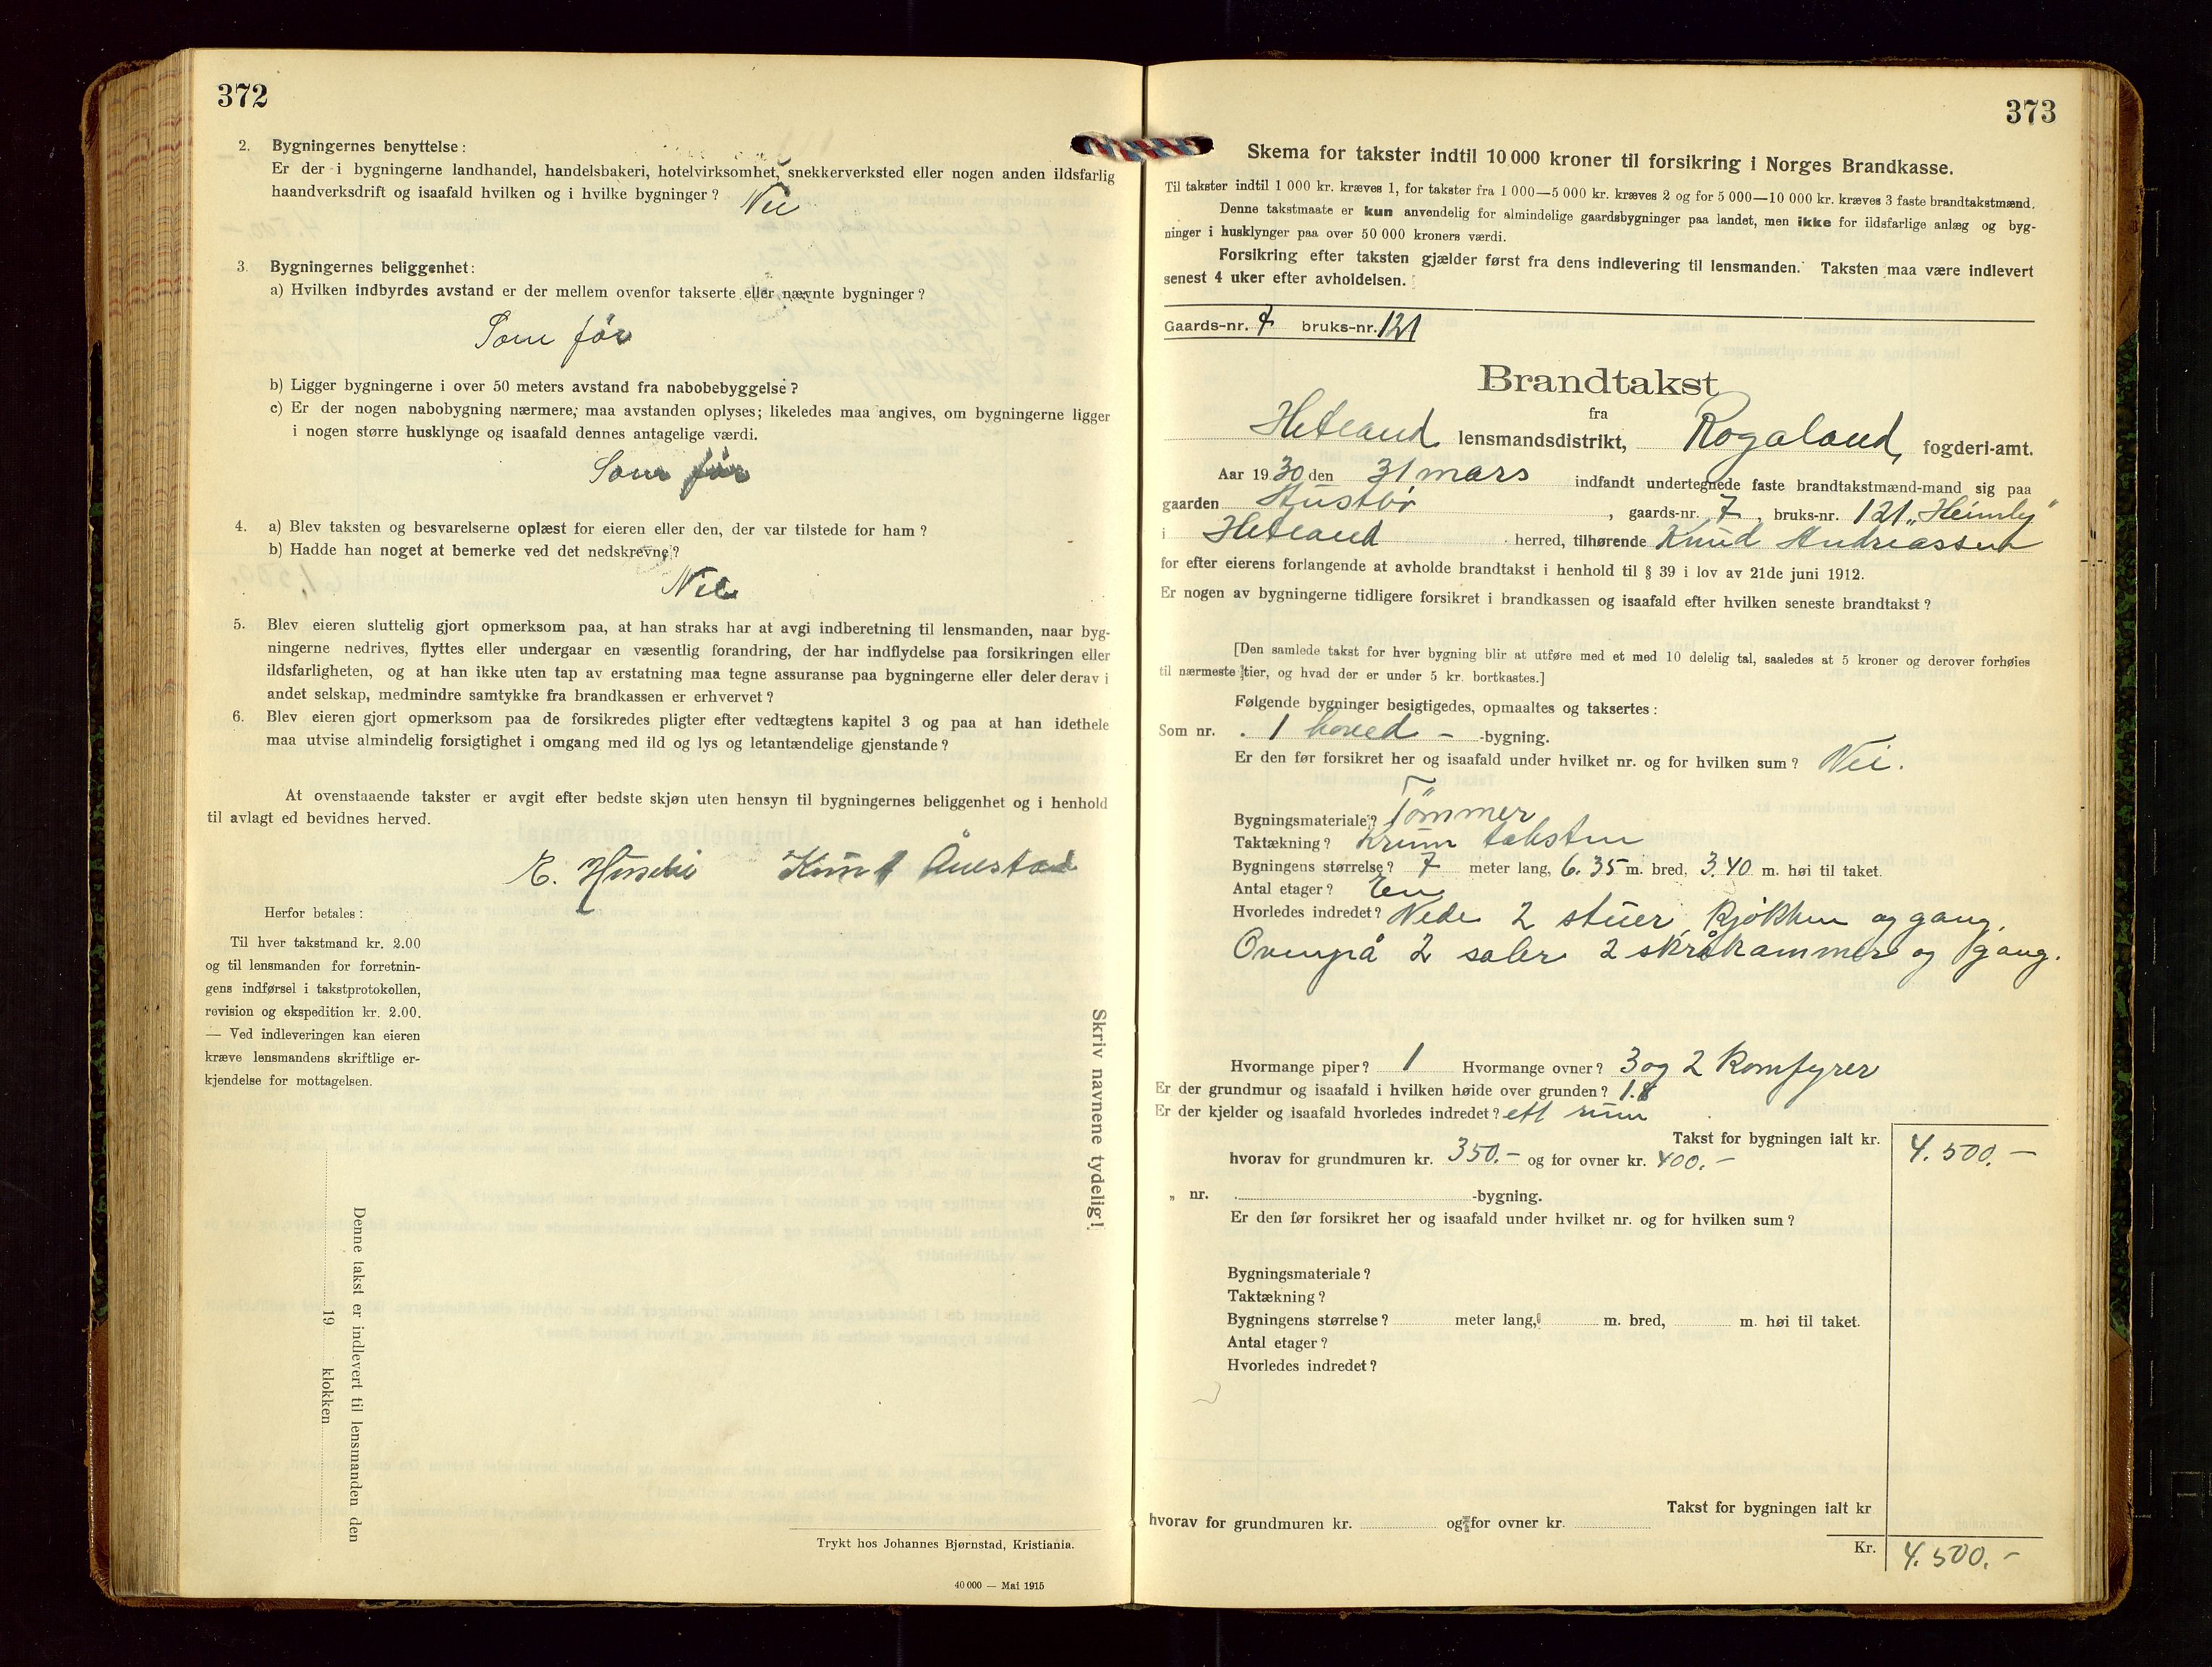 372
2. Bygningernes benyttelse:
Er der i bygningerne landhandel, handelsbakeri, hotelvirksomhet, snekkerverksted eller nogen anden ildsfarlig
haandverksdrift og isaafald hvilken og i hvilke bygninger? Nei
3. Bygningernes beliggenhet:
a) Hvilken indbyrdes avstand er der mellem ovenfor takserte eller nævnte bygninger?
Som før
b) Ligger bygningerne i over 50 meters avstand fra nabobebyggelse?
c) Er der nogen nabobygning nærmere, maa avstanden oplyses; likeledes maa angives, om bygningerne ligger
i nogen større husklynge og isaafald dennes antagelige værdi.
Som før
4. a) Blev taksten og besvarelserne oplæst for eieren eller den, der var tilstede for ham?
b) Hadde han noget at bemerke ved det nedskrevne?
Nei
5. Blev eieren sluttelig gjort opmerksom paa, at han straks har at avgi indberetning til lensmanden, naar byg-
ningerne nedrives, flyttes eller undergaar en væsentlig forandring, der har indflydelse paa forsikringen eller
ildsfarligheten, og at han ikke uten tap av erstatning maa tegne assuranse paa bygningerne eller deler derav i
andet selskap, medmindre samtykke fra brandkassen er erhvervet?
6. Blev eieren gjort opmerksom paa de forsikredes pligter efter vedtægtens kapitel 3 og paa at han idethele
maa utvise almindelig forsigtighet i omgang med ild og lys og letantændelige gjenstande?
At ovenstaaende takster er avgit efter bedste skjøn uten hensyn til bygningernes beliggenhet og i henhold
til avlagt ed bevidnes herved.
E. Knut Auestad
Herfor betales:
Til hver takstmand kr. 2.00
og til lensmanden for forretnin-
gens indførsel i takstprotokollen,
revision og ekspedition kr. 2.00.
— Ved indleveringen kan eieren
kræve lensmandens skriftlige er-
kjendelse for mottagelsen.
Skriv navnene tydelig!
Denne takst er indlevert til lensmanden den
19 klokken
Trykt hos Johannes Bjørnstad, Kristiania.
40 000 — Mai 1915
373
Skema for takster indtil 10 000 kroner til forsikring i Norges Brandkasse.
Til takster indtil 1 000 kr. kræves 1, for takster fra 1 000—5 000 kr. kræves 2 og for 5 000—10 000 kr. kræves 3 faste brandtakstmænd.
Denne takstmaate er kun anvendelig for almindelige gaardsbygninger paa landet, men ikke for ildsfarlige anlæg og byg-
ninger i husklynger paa over 50 000 kroners værdi.
Forsikring efter taksten gjælder først fra dens indlevering til lensmanden. Taksten maa være indlevert
senest 4 uker efter avholdelsen.
Gaards-nr. 7 bruks-nr. 121
Brandtakst
fra
Hetland lensmandsdistrikt, Rogaland, fogderi-amt.
Aar 1930 den 31 mars indfandt undertegnede faste brandtakstmænd-mand sig paa
gaarden , gaards-nr. 7, bruks-nr. 121 „Heimly"
i Hetland herred, tilhørende Knud Andreassen
for efter eierens forlangende at avholde brandtakst i henhold til § 39 i lov av 21de juni 1912.
Er nogen av bygningerne tidligere forsikret i brandkassen og isaafald efter hvilken seneste brandtakst?
[Den samlede takst for hver bygning blir at utføre med et med 10 delelig tal, saaledes at 5 kroner og derover forhøies
til nærmeste tier, og hvad der er under 5 kr. bortkastes.]
Følgende bygninger besigtigedes, opmaaltes og taksertes:
Som nr. 1 hoved - -bygning.
Er den før forsikret her og isaafald under hvilket nr. og for hvilken sum? Nei.
Bygningsmateriale? Tømmer
Taktækning? Krum taksten
Bygningens størrelse? 7 meter lang, 6.35 m. bred, 3.40 m. høi til taket.
Antal etager? En
Hvorledes indredet? Nede 2 stuer, kjøkken og gang,
Ovenpå 2 saler 2 skråkammer og 1 gang.
Hvormange piper? 1 Hvormange ovner? 3 og 2 Komfyrer
Er der grundmur og isaafald i hvilken høide over grunden? 1.8
Er der kjelder og isaafald hvorledes indredet? ett rum
Takst for bygningen ialt kr. 4.500.—
hvorav for grundmuren kr. 350.— og for ovner kr. 400.—
„ nr. -bygning.
Er den før forsikret her og isaafald under hvilket nr. og for hvilken sum?
Bygningsmateriale?
Taktækning?
Bygningens størrelse? meter lang, m. bred, m. høi til taket.
Antal etager?
Hvorledes indredet?
Takst for bygningen ialt kr
hvorav for grundmuren kr. og for ovner kr.
Kr. 4.500.-